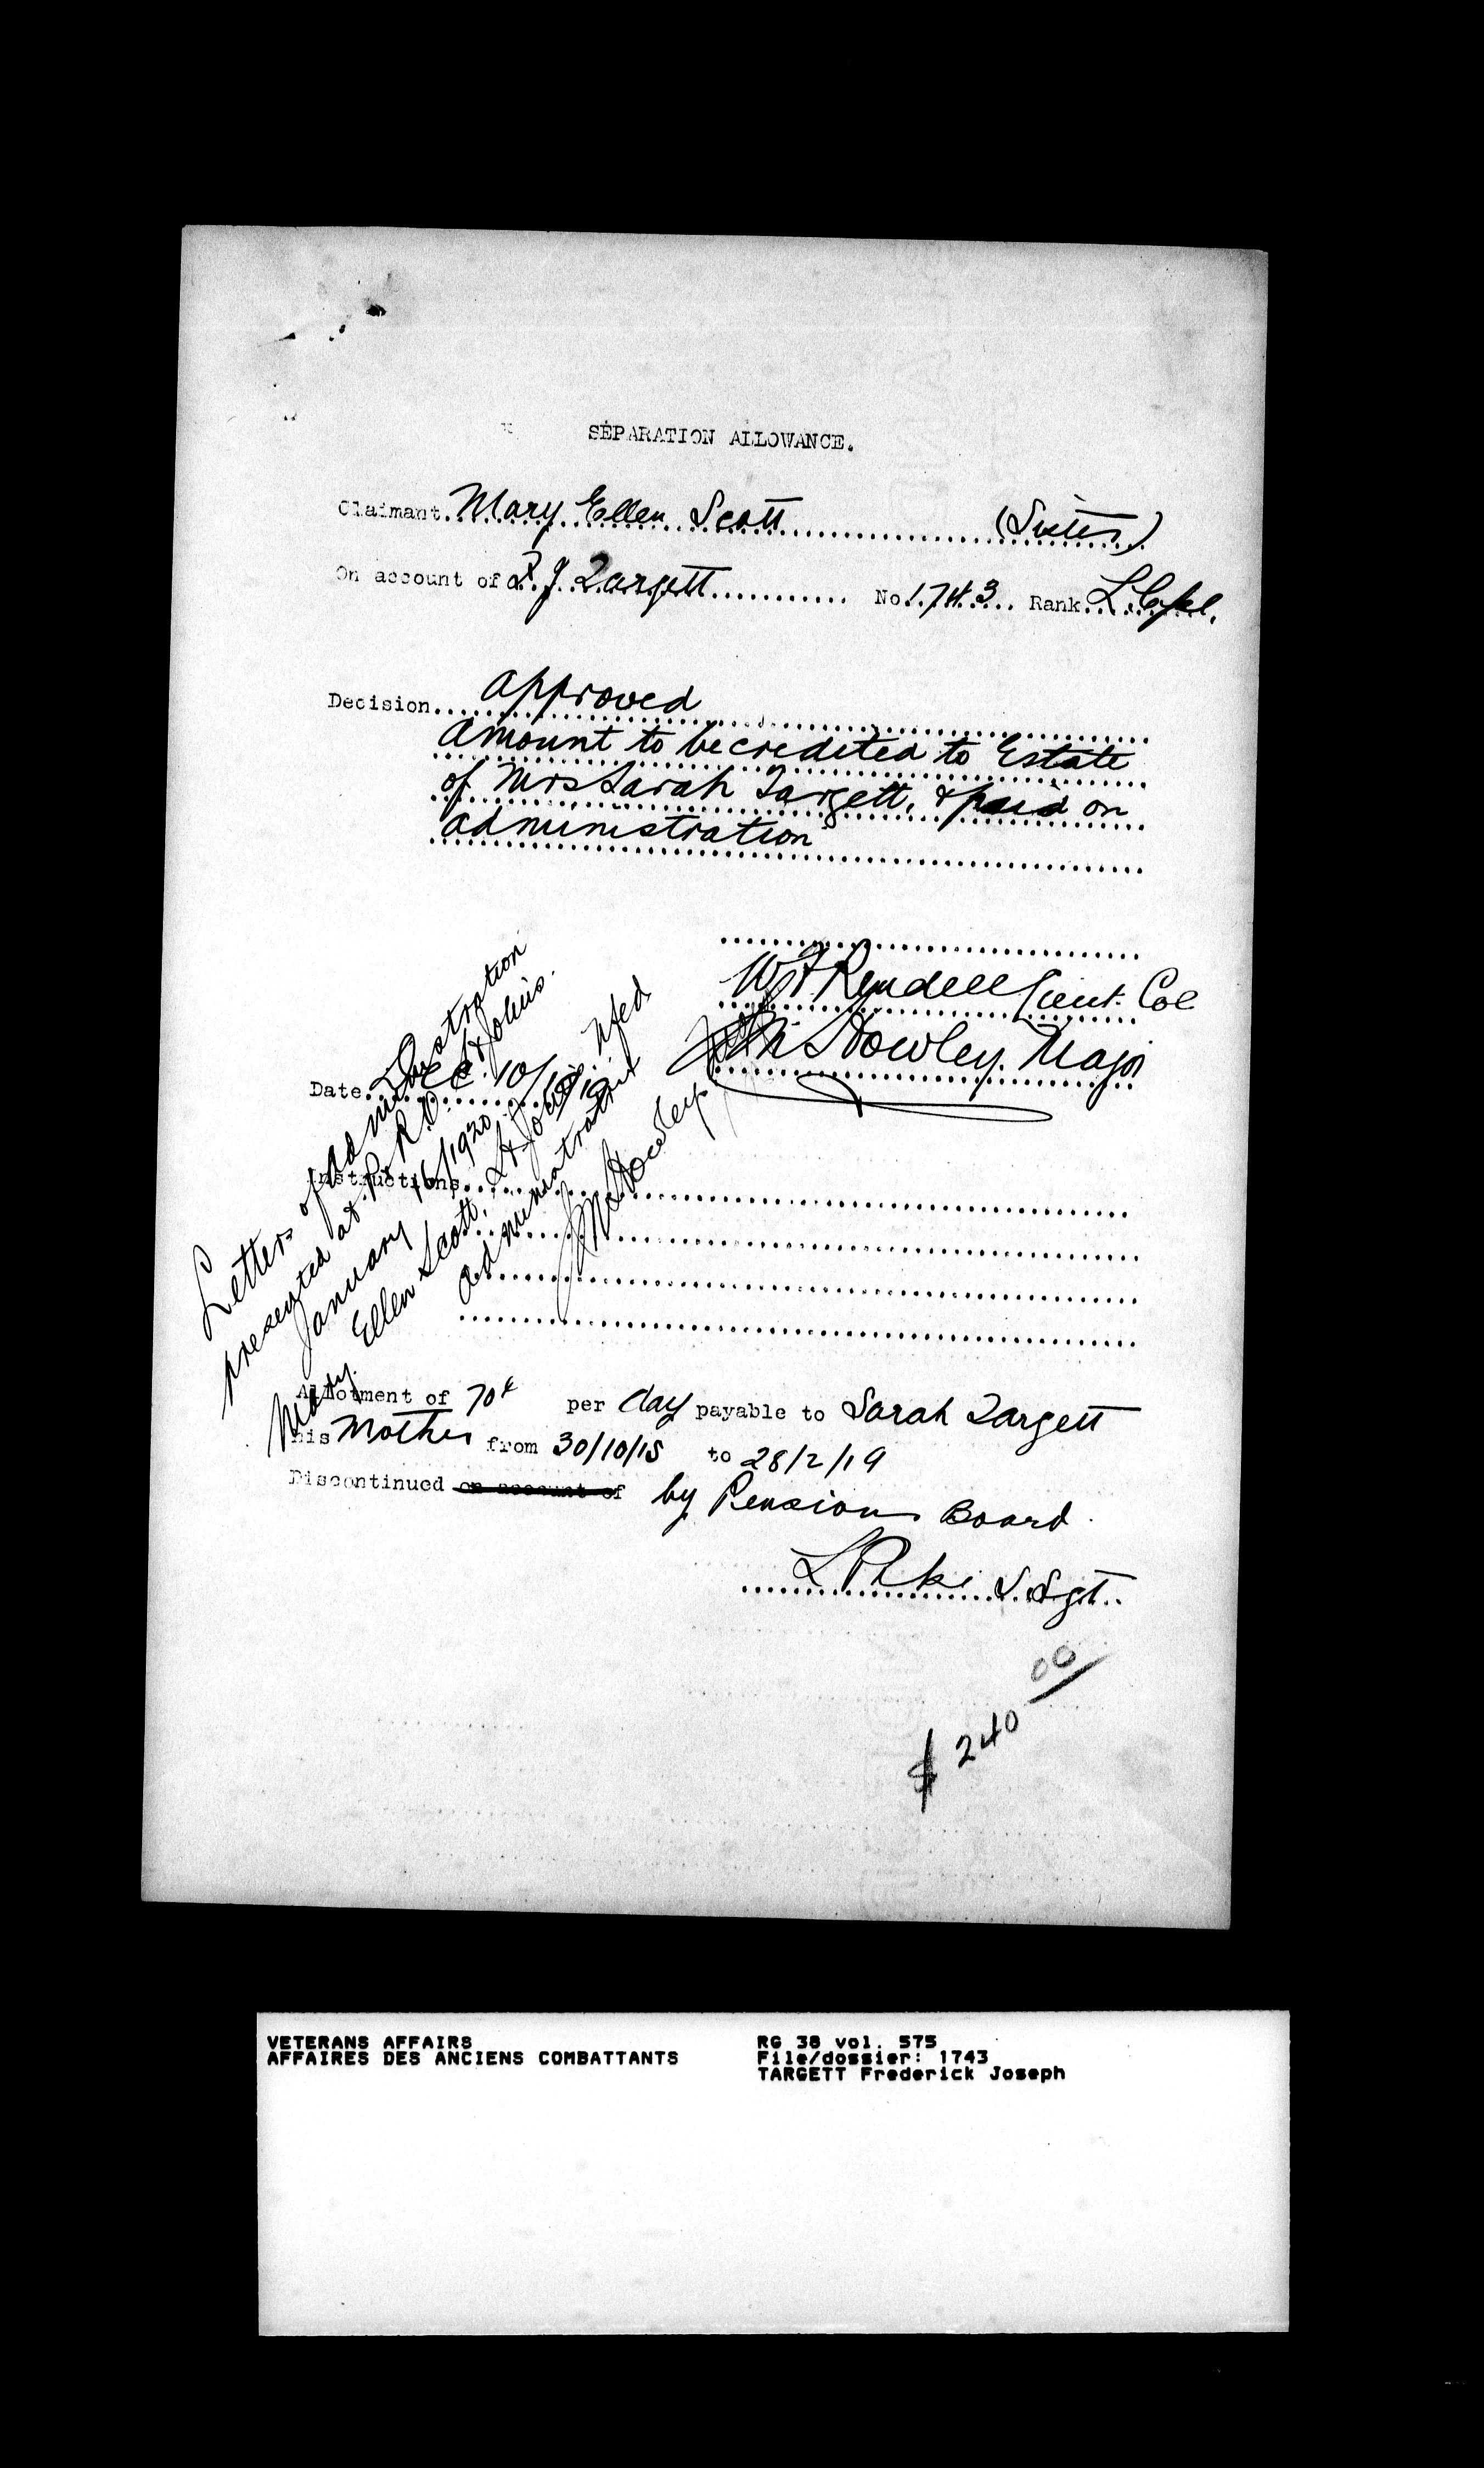 SEPARATION ALLOWANCE.
Claimant Mary Ellen Scott (Sister)
On account of F. J. Targett No. 1743 Rank L. Cpl.
Decision approved
amount to be credited to Estate
of Mrs Sarah Targett, & paid on
administration
W F Rendell Lieut. Col
Howley. Major
Date Dec. 10/19
Instructions
Letters of Administration
presented at P. & R. O. St Johns.
January 16/1920
Mary Ellen Scott, St John's. Nfld
administratrix
Howley
Allotment of 70¢ per day payable to Sarah Targett
his Mother from 30/10/15 to 28/2/19
Discontinued on account of by Pensions Board.
S. Sgt.
$ 240 00
VETERANS AFFAIRS
AFFAIRES DES ANCIENS COMBATTANTS
RG 38 vol. 575
File/dossier: 1743
TARGETT Frederick Joseph